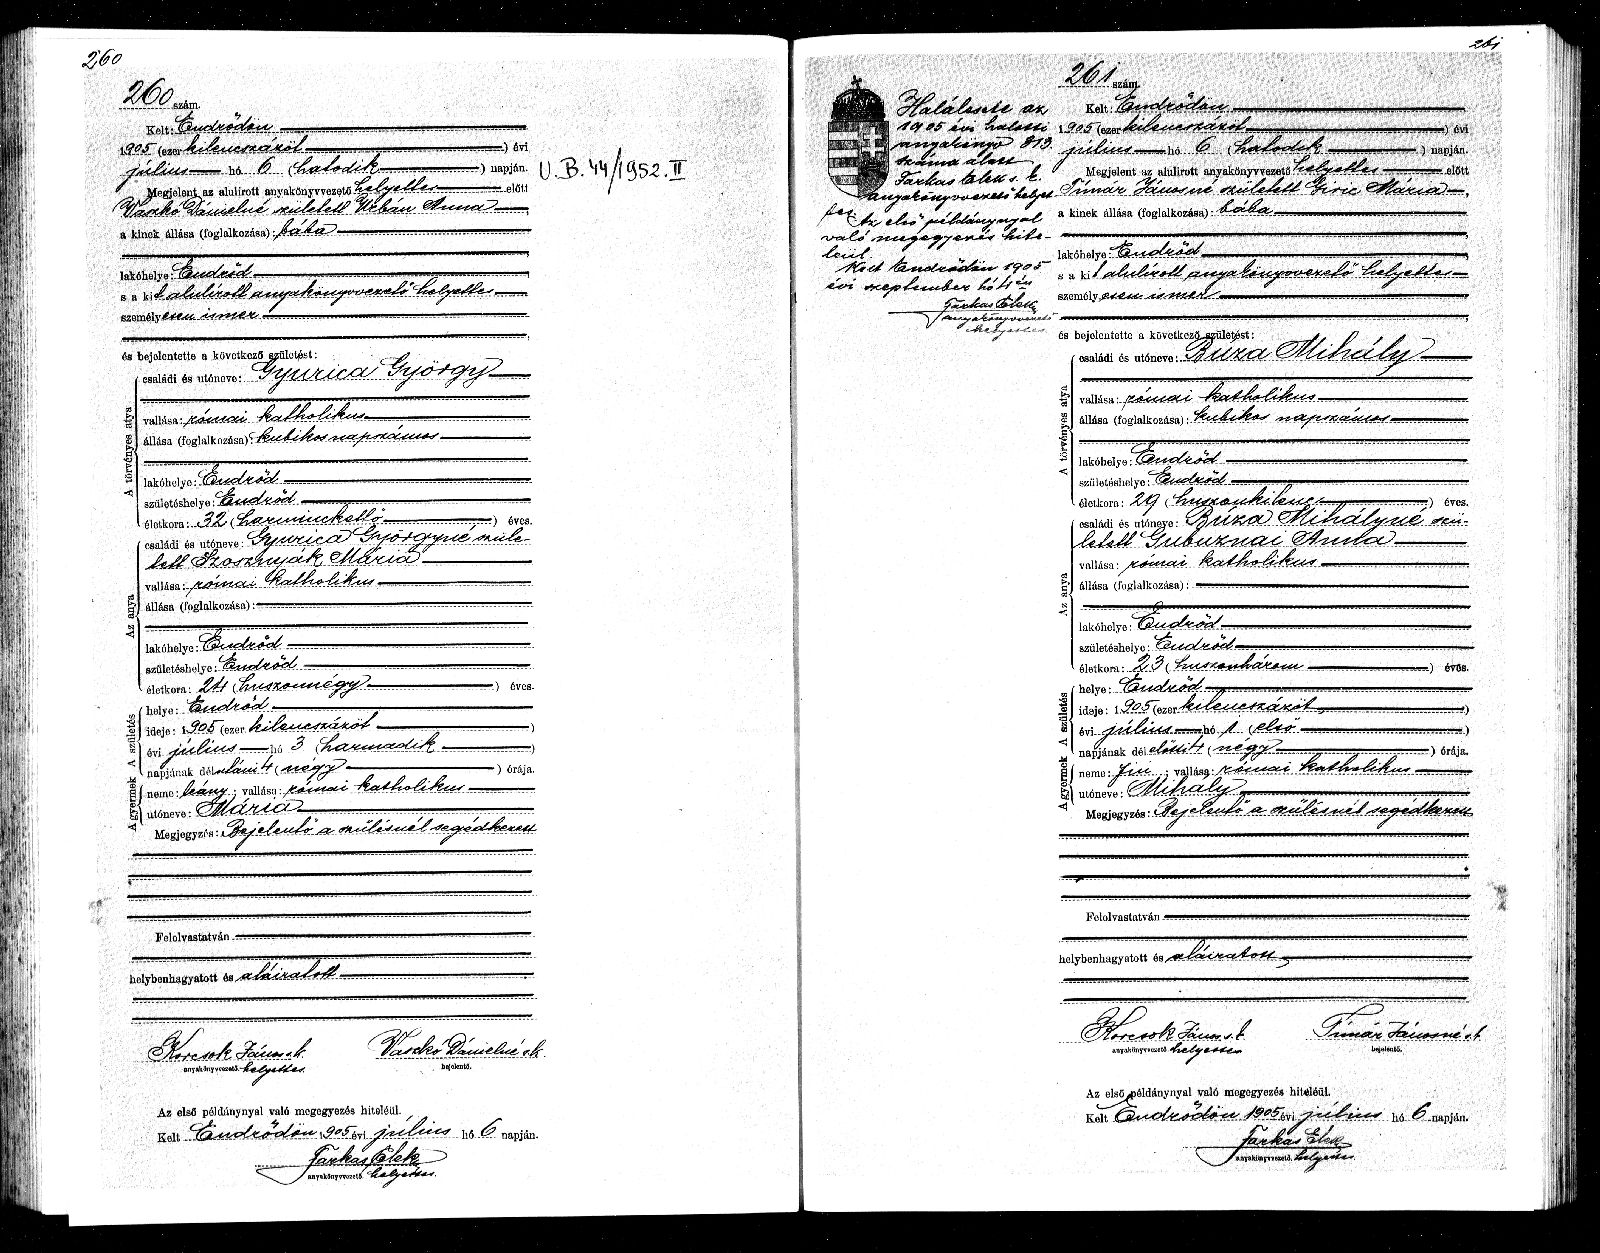 260
260 szám.
Kelt: Endrődön
1905 (ezer kilenczszázöt) évi
július hó 6 (hatodik) napján.
Megjelent az alulirott anyakönyvvezető helyettes előtt
Vaszkó Dánielné született Urbán Anna,
a kinek állása (foglalkozása): bába
lakóhelye: Endrőd
s a kit alulírott anyakönyvvezető helyettes
személyesen ismer
és bejelentette a következő születést:
A törvényes atya
családi és utóneve: Gyurica György
vallása: római katholikus
állása (foglalkozása): kubikos napszámos
lakóhelye: Endrőd
születéshelye: Endrőd
életkora: 32 (harminckettő) éves.
Az anya
családi és utóneve: Gyurica Györgyné szüle-
tett Szosznyák Mária
vallása: római katholikus
állása (foglalkozása):
lakóhelye: Endrőd
születéshelye: Endrőd
életkora: 24 (huszonnégy) éves.
A születés
helye: Endrőd
ideje: 1905 (ezer kilenczszázöt)
évi július hó 3 (harmadik)
napjának délutáni 4 (négy) órája.
A gyermek
neme: leány; vallása: római katholikus
utóneve: Mária
Megjegyzés: Bejelentő a szülésnél segédkezett
Felolvastatván
helybenhagyatott és aláiratott
Korcsok János s. k. Vaszkó Dánielné s. k.
anyakönyvvezető. helyettes. bejelentő.
Az első példánynyal való megegyezés hiteléül.
Kelt Endrődön 1905 évi július hó 6 napján.
Farkas Elek
anyakönyvvezető. helyettes.
U. B. 44/1952. II
261
Haláleste az
1905 évi halotti
anyakönyv 313
száma alatt
Farkas Elek s. k.
anyakönyvvezető helyet
tes
Az első példánynyal
való megegyezés hite-
leül
Kelt Endrődön 1905
évi szeptember hó 4én
Farkas Elek
anyakönyvvezető
helyettes
261 szám.
Kelt: Endrődön
1905 (ezer kilenczszázöt) évi
július hó 6 (hatodik) napján.
Megjelent az alulirott anyakönyvvezető helyettes előtt
Tímár Jánosné született Giric Mária,
a kinek állása (foglalkozása): bába
lakóhelye: Endrőd
s a kit alulírott anyakönyvvezető helyettes
személyesen ismer
és bejelentette a következő születést:
A törvényes atya
családi és utóneve: Búza Mihály
vallása: római katholikus
állása (foglalkozása): kubikos napszámos
lakóhelye: Endrőd
születéshelye: Endrőd
életkora: 29 (huszonkilenc) éves.
Az anya
családi és utóneve: Búza Mihályné szü-
letett Gubuznai Anna
vallása: római katholikus
állása (foglalkozása):
lakóhelye: Endrőd
születéshelye: Endrőd
életkora: 23 (huszonhárom) éves.
A születés
helye: Endrőd
ideje: 1905 (ezer kilenczszázöt)
évi július hó 1 (első)
napjának délelőtti 4 (négy) órája.
A gyermek
neme: fiú; vallása: római katholikus
utóneve: Mihály
Megjegyzés: Bejelentő a szülésnél segédkezett
Felolvastatván
helybenhagyatott és aláiratott
Korcsok János s. k. Tímár Jánosné s. k.
anyakönyvvezető. helyettes bejelentő.
Az első példánynyal való megegyezés hiteléül.
Kelt Endrődön 1905 évi július hó 6 napján.
Farkas Elek
anyakönyvvezető. helyettes.